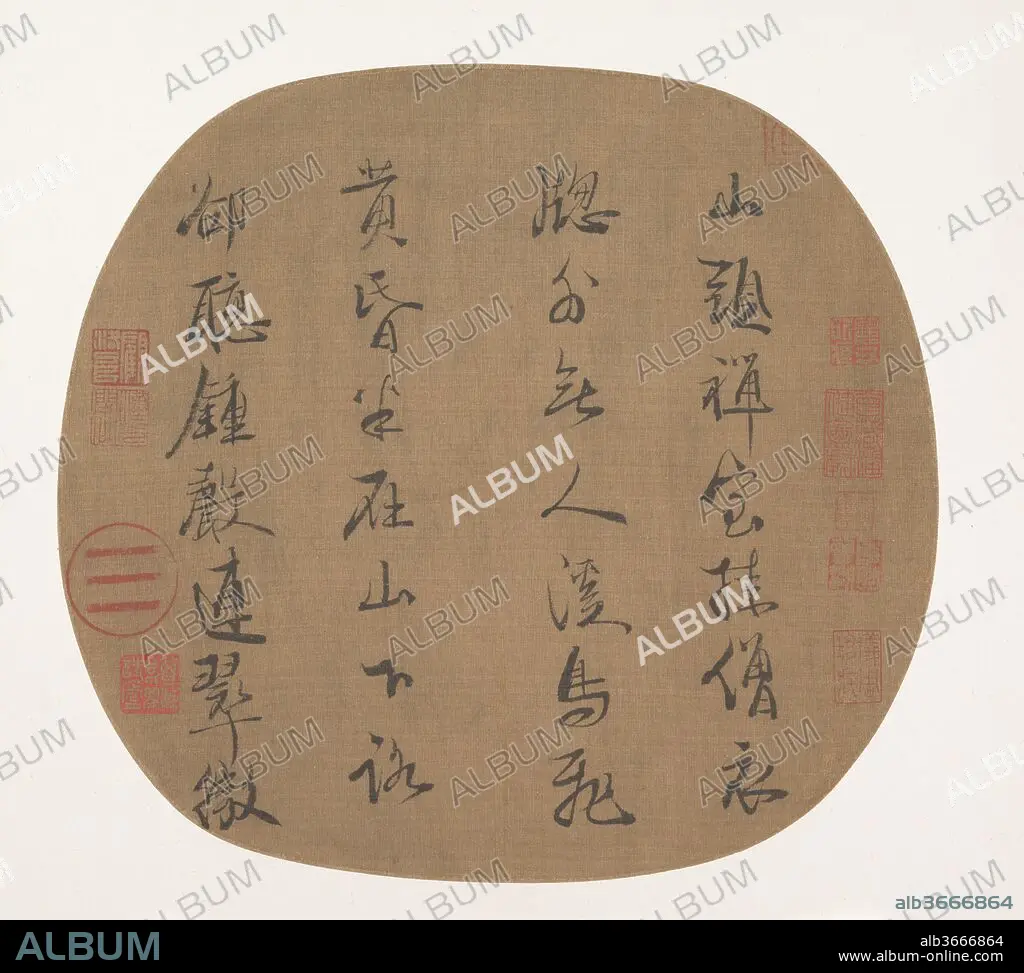 山頭禪室挂僧衣
牕外無人溪鳥飛
黃昏半在山下路
卻聽鍾聲連翠微
ALBUM
alb3666864
ALBUM
alb3666864
www.album-online.com